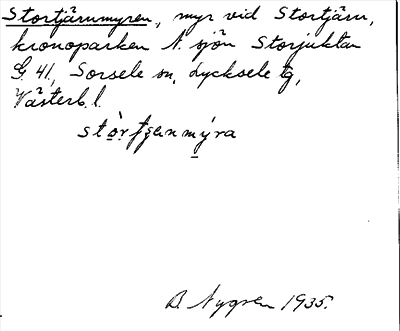 Stortjärnmyren, myr vid Stortjärn,
kronoparken N. sjön Storjuktan
G. 41, Sorsele sn, Lycksele tg,
Västerb. l.
B. Nygren 1935.